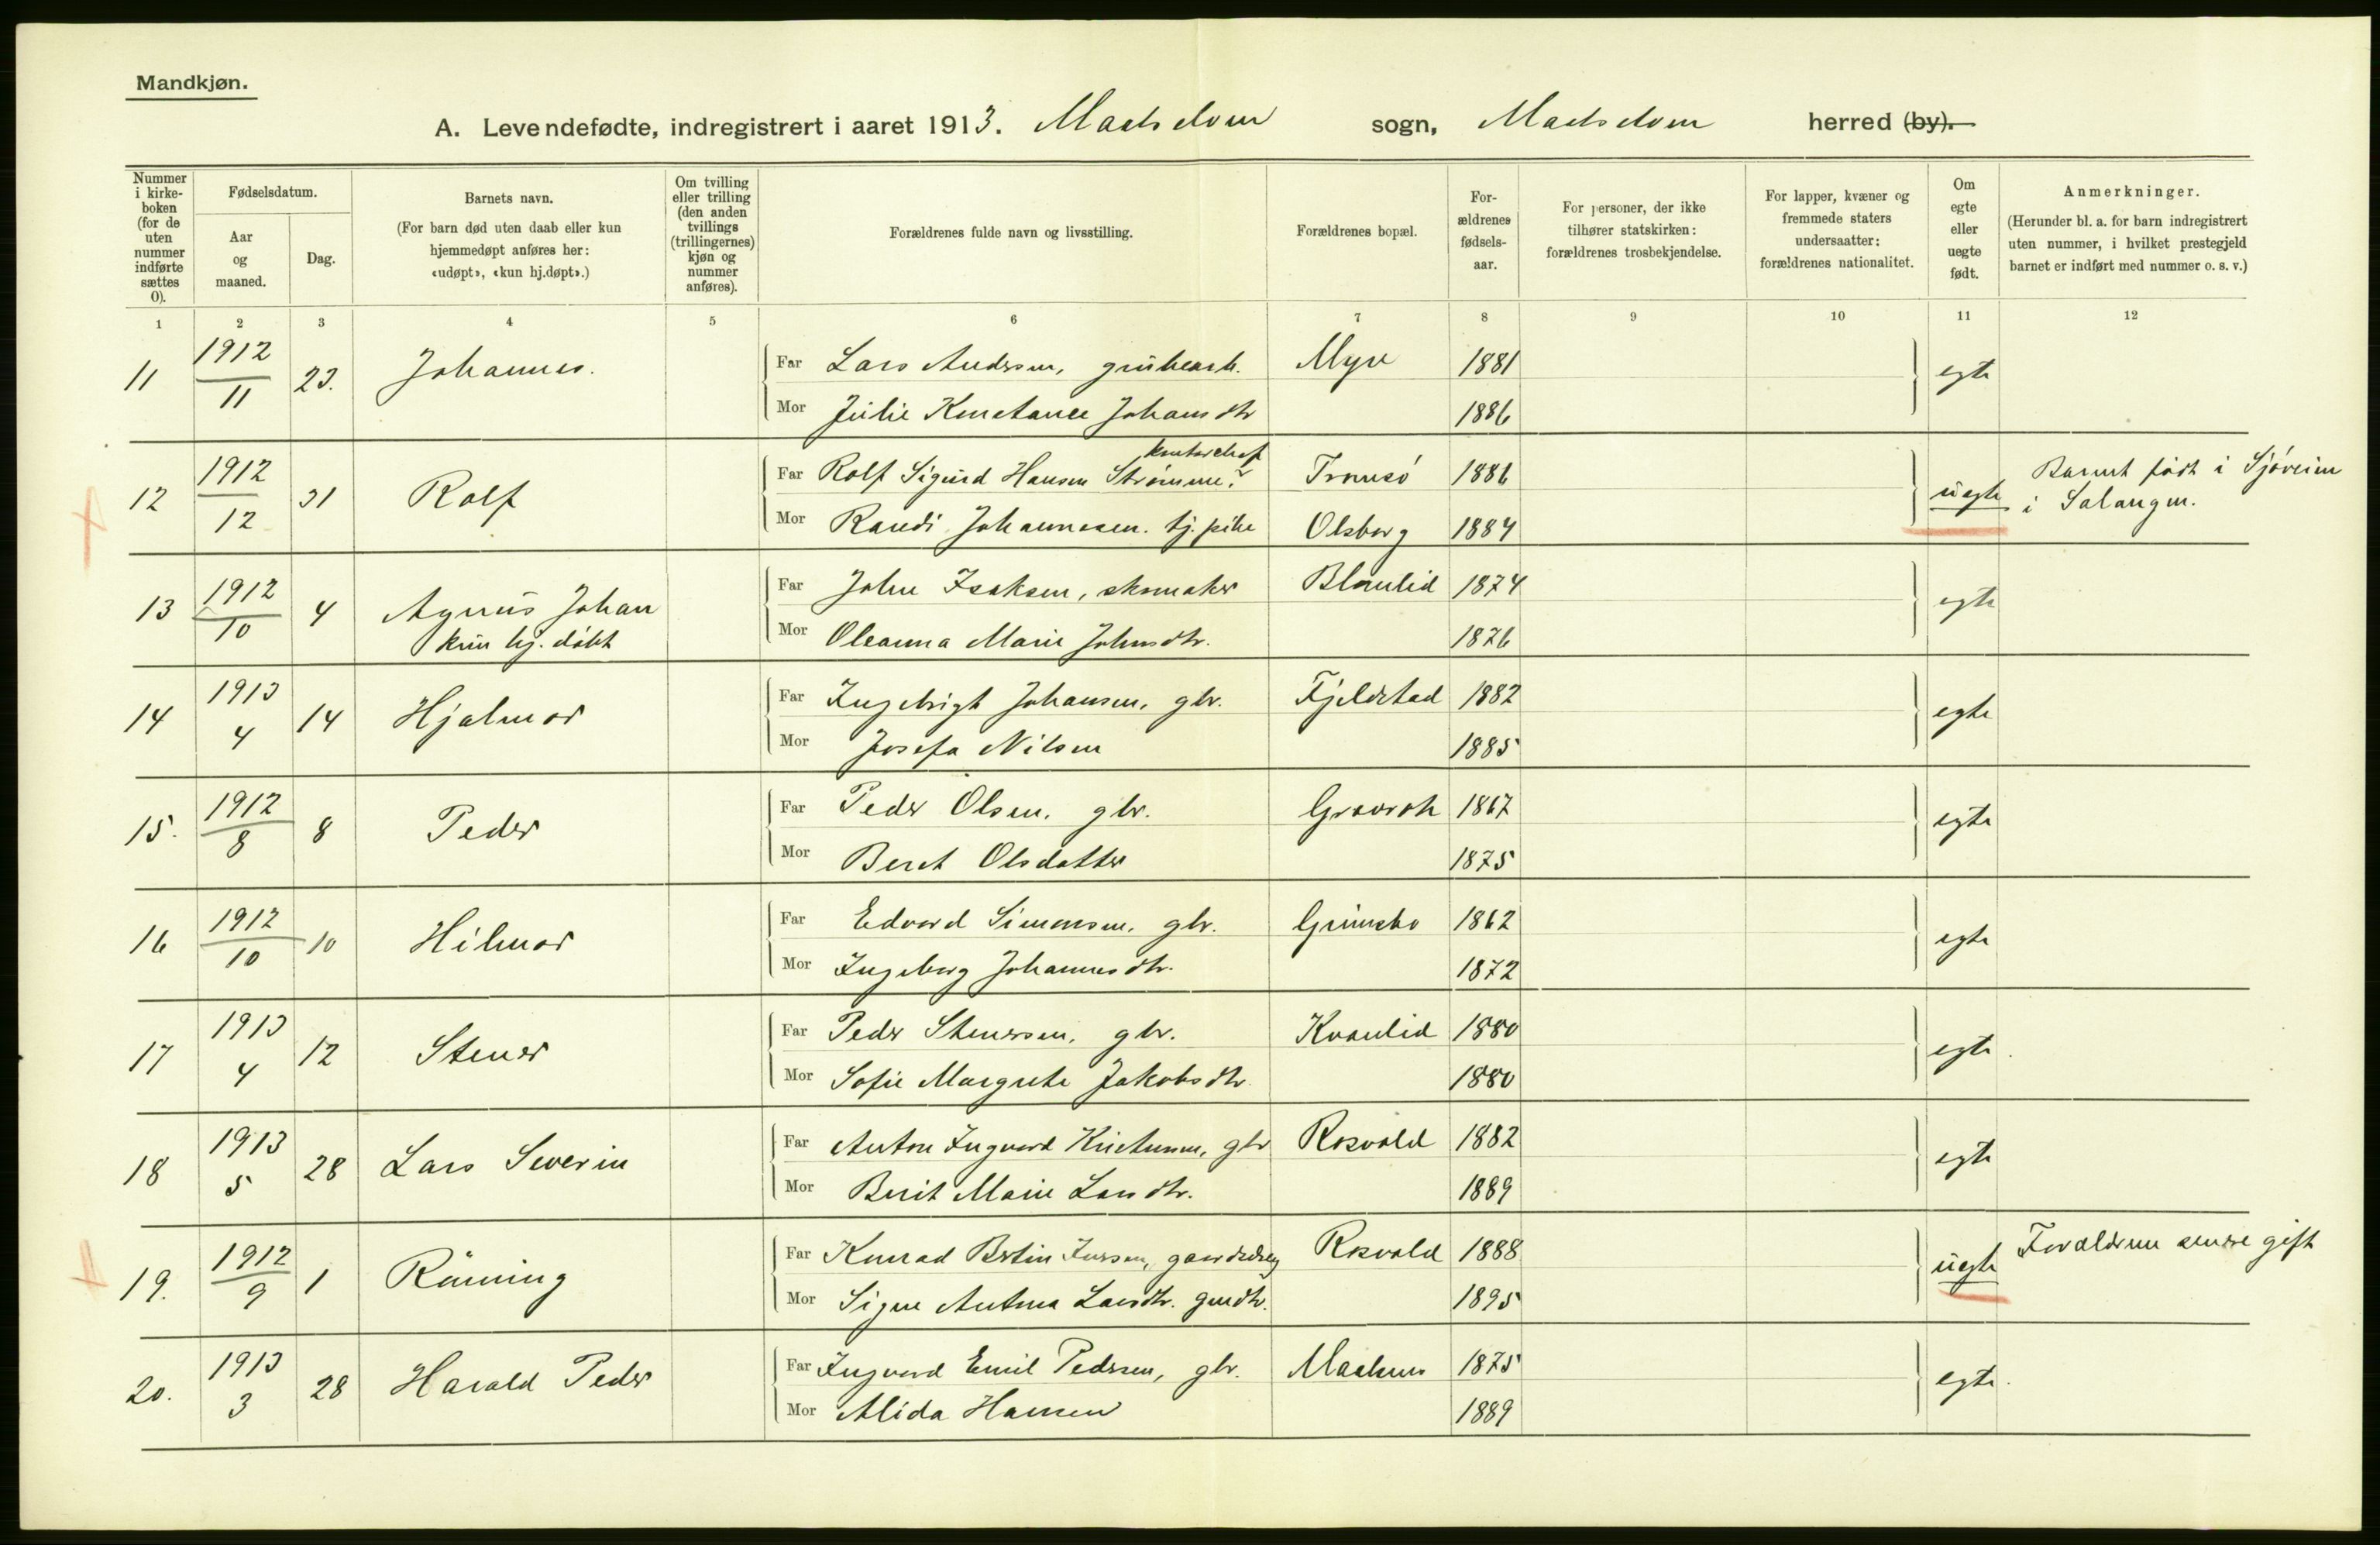 Mandkjøn.
A. Levendefødte, indregistrert i aaret 1913. Maalselven sogn, Maalselven herred (by).
Nummer i kirkeboken (for de uten nummer indførte sættes 0).
Fødselsdatum.
Aar og maaned.
Dag.
Barnets navn.
(For barn død uten daab eller kun hjemmedøpt anføres her: «udøpt», «kun hj.døpt».)
Om tvilling eller trilling (den anden tvillings (trillingernes) kjøn og nummer anføres).
Forældrenes fulde navn og livsstilling.
Forældrenes bopæl.
Forældrenes fødselsaar.
For personer, der ikke tilhører statskirken: forældrenes trosbekjendelse.
For lapper, kvæner og fremmede staters undersaatter: forældrenes nationalitet.
Om egte eller uegte født.
Anmerkninger.
(Herunder bl. a. for barn indregistrert uten nummer, i hvilket prestegjeld barnet er indført med nummer o. s. v.)
1 2 3 4 5 6 7 8 9 10 11 12
11 1912 11 23. Johannes. Far Lars Andersen, grubearb. Myre 1881 egte
Mor Julie Konstance Johansdtr 1886
12 1912 12 31 Rolf Far Rolf Sigurd Hansen Strømme, kontorchef Tromsö 1886 uegte Barnet födt i Sjöveien
Mor Randi Johannesen. tj.pike Olsborg 1884 i Salangen.
13 1912 10 4 Agnus Johan Far John Isaksen, skomaker 1874 egte
kun hj. döbt Mor Oleanna Marie Johnsdtr. 1876
14 1913 4 14 Hjalmar Far Ingebrigt Johansen, gbr. Fjeldstad 1882 egte
Mor Josefa Nilsen 1885
15. 1912 8 8 Peder Far Peder Olsen. gbr. 1867 egte
Mor Beret Olsdatter 1875
16 1912 10 10 Hilmar Far Edvard Simonsen. gbr. Grimsbo 1862 egte
Mor Ingeborg Johannesdtr. 1872
17 1913 4 12 Stener Far Peder Stenersen, gbr. Kvanlid 1880 egte.
Mor Sofie Margrete Jakobsdtr. 1880
18 1913 5 28 Lars Severin Far Anton Ingvard Kristensen, gbr Rosvold 1882 egte
Mor Berit Marie Larsdtr. 1889
19. 1912 9 1 Rönning Far Konrad Bertin Iversen, Rosvold 1888 uegte Forældrene senere gift
Mor Signe Antona Larsdtr. gmdtr. 1895
20. 1913 3 28 Harald Peder Far Ingvard Emil Pedersen, gbr. 1875 egte.
Mor Alida Hansen 1889